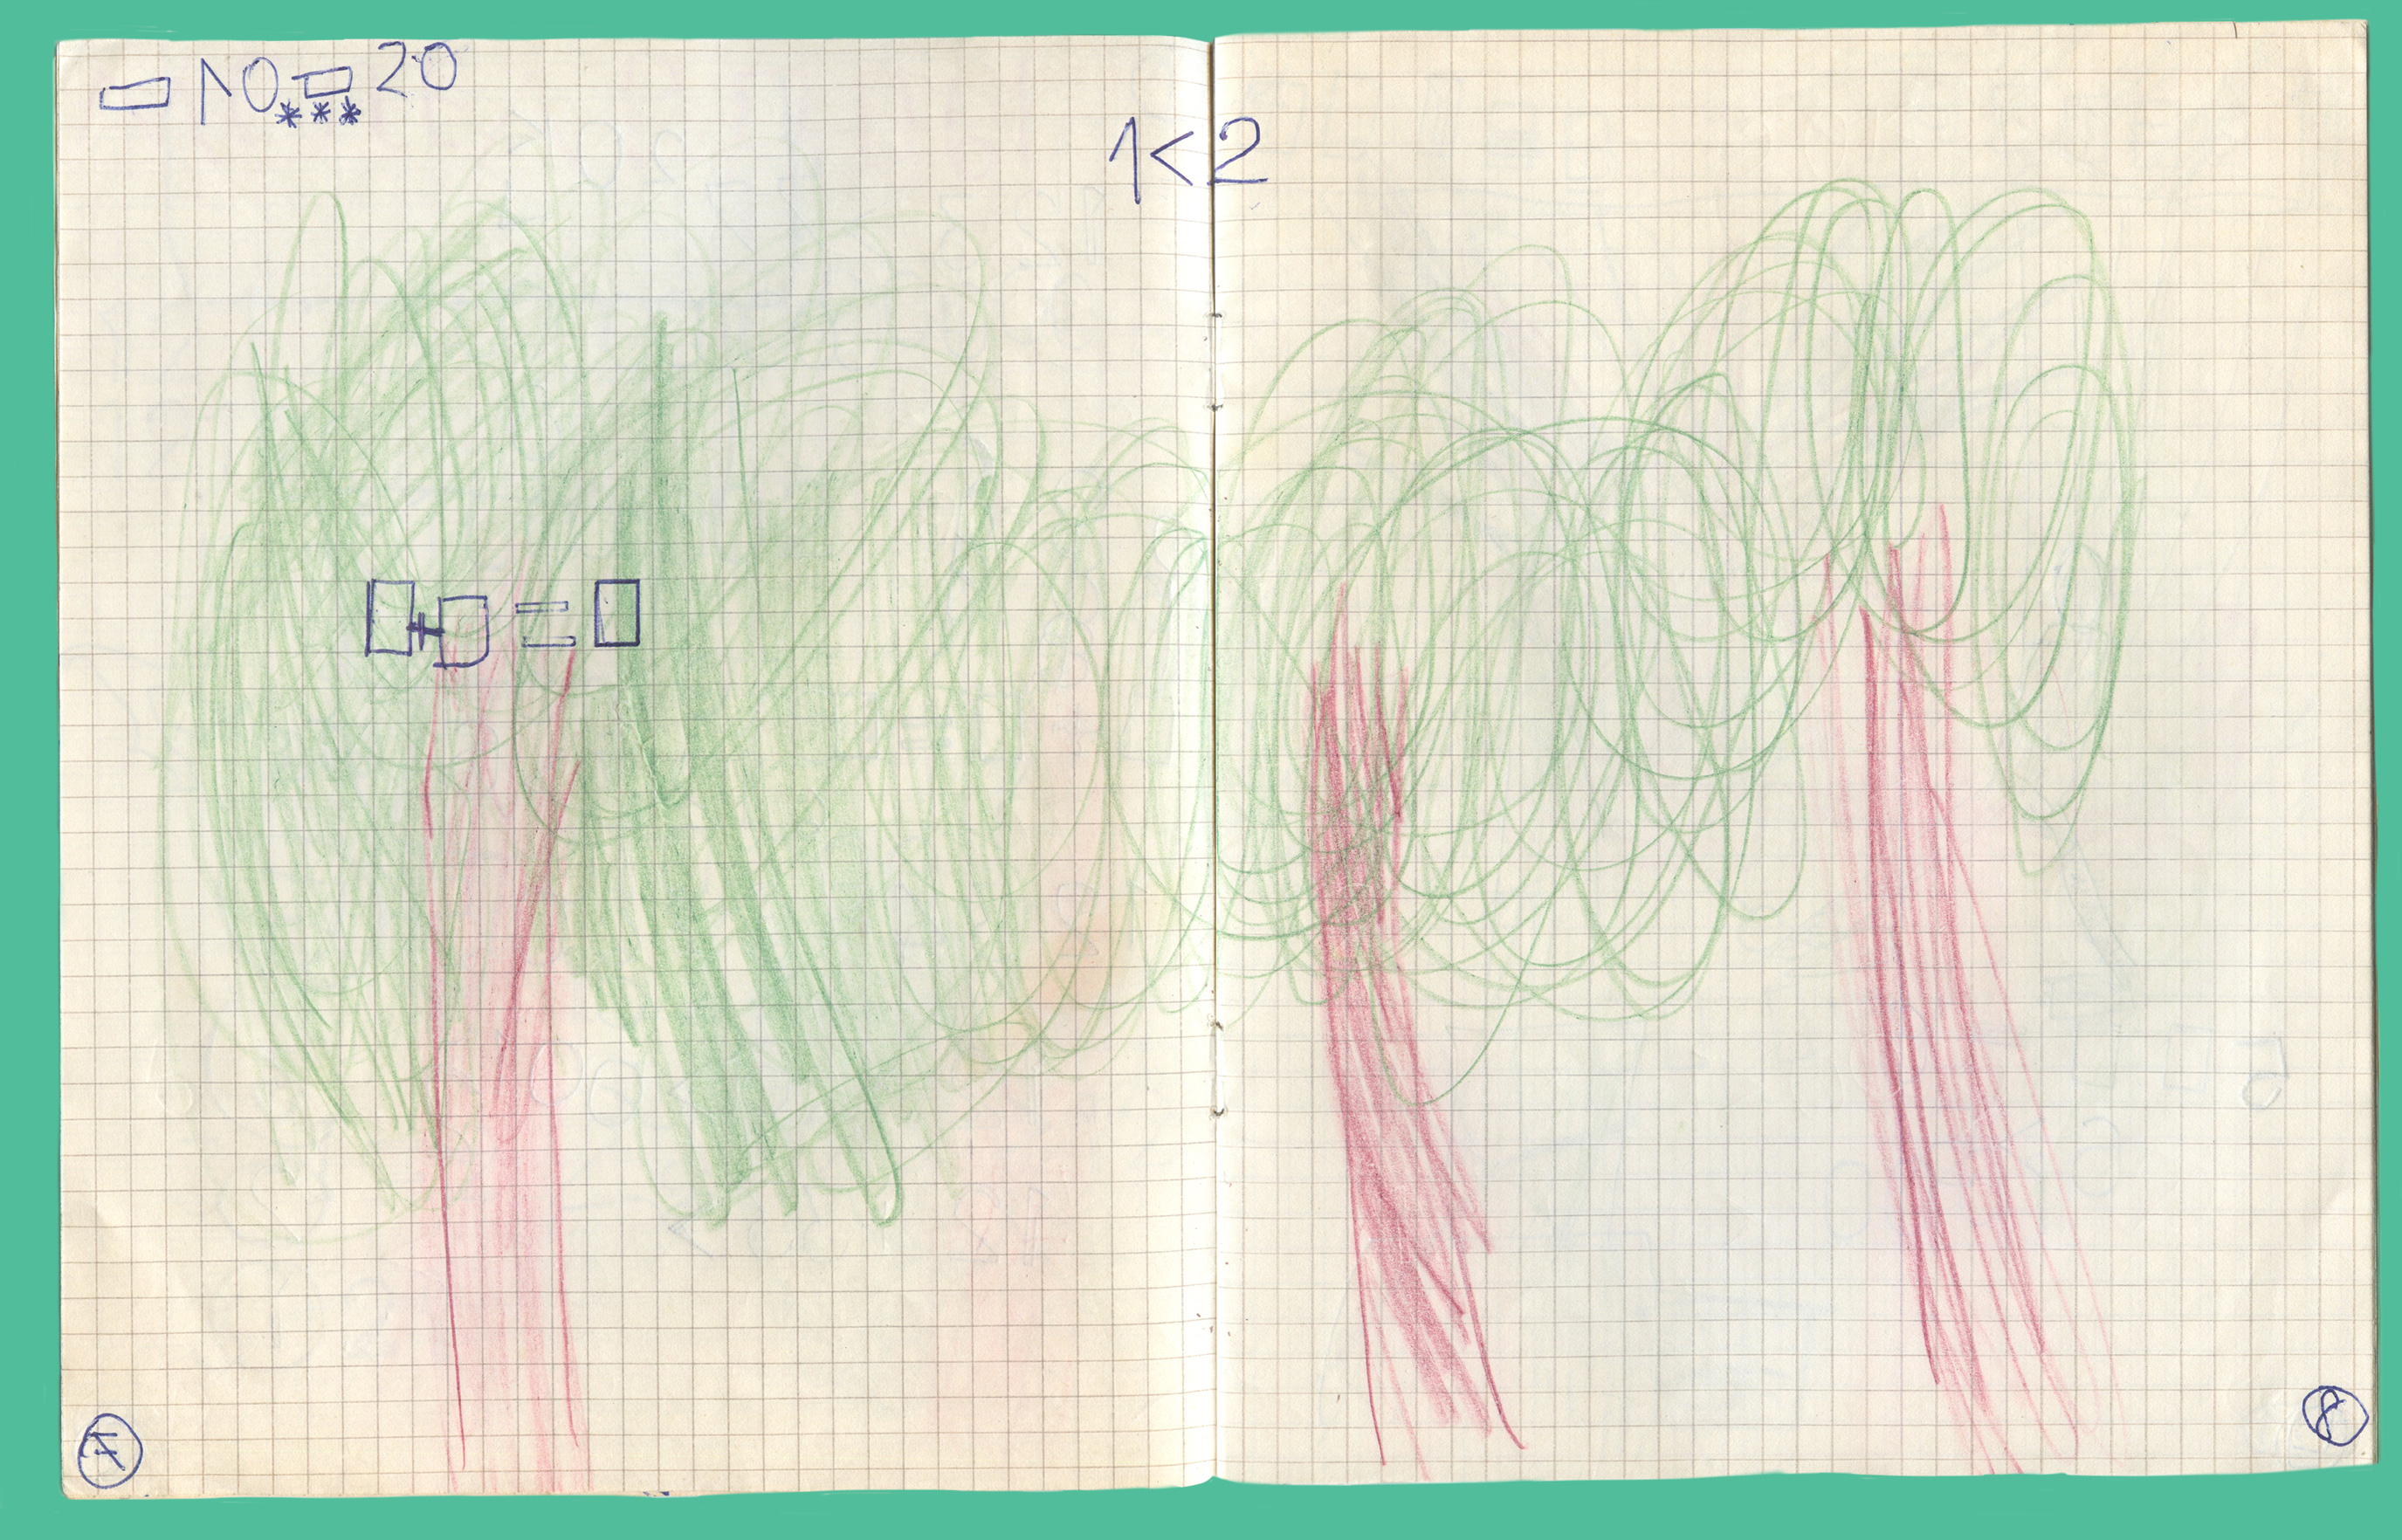 ▭ 10 ▭ 20
***
1<2
▯+▯=▯
7
8